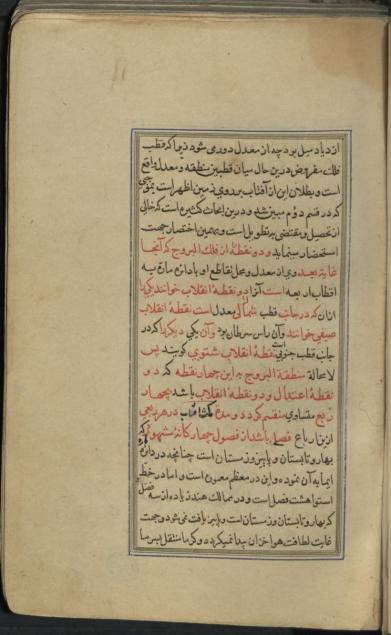 ازدیاد میل بر درجه از معدل دوری شود زیرا که قطب
فلک مفروض درین حال میان قطبین منطقه و معدل واقع
است و بطلان این از آفتاب بر روی زمین اظهر است
که در قسم دوم مبین شد و درین ابحاث کثیره است که خالی
از تحصیل و مقتضی بر تطویل است و بهمین اختصار جهت
استحضار مینماید و دو نقطهٔ از فلک البروج که آنجا
غایة بعد وی از معدل و محل تقاطع او با دائره ماره به
اقطاب اربعه است آنرا دو نقطهٔ انقلاب خوانند یکی را
ازان که در جانب قطب شمالی معدل است نقطهٔ انقلاب
صیفی خوانند و آن راس سرطان بود و آن یکی دیگر را که در
جانب قطب جنوبی است نقطهٔ انقلاب شتوی گویند پس
لا محالة منطقة البروج به این چهار نقطه که دو
نقطهٔ اعتدال و دو نقطهٔ انقلاب باشد بچهار
ربع متساوی منقسم گردد و مدة مکث آفتاب در هر ربعی
ازین ارباع فصلی باشد از فصول چهار کانهٔ مشهوره که
بهار و تابستان و پاییز و زمستان است چنانچه در دائره
ایما به آن نموده و این در معظم معموره است و اما در خط
استوا هشت فصل است و در ممالک هند زیاده از سه فصل
که بهار و تابستان و زمستان است و پاییز یافت نمی شود و جهت
غایت لطافت هوا خزان پیدا نمیگردد و گرما منتقل بسرما